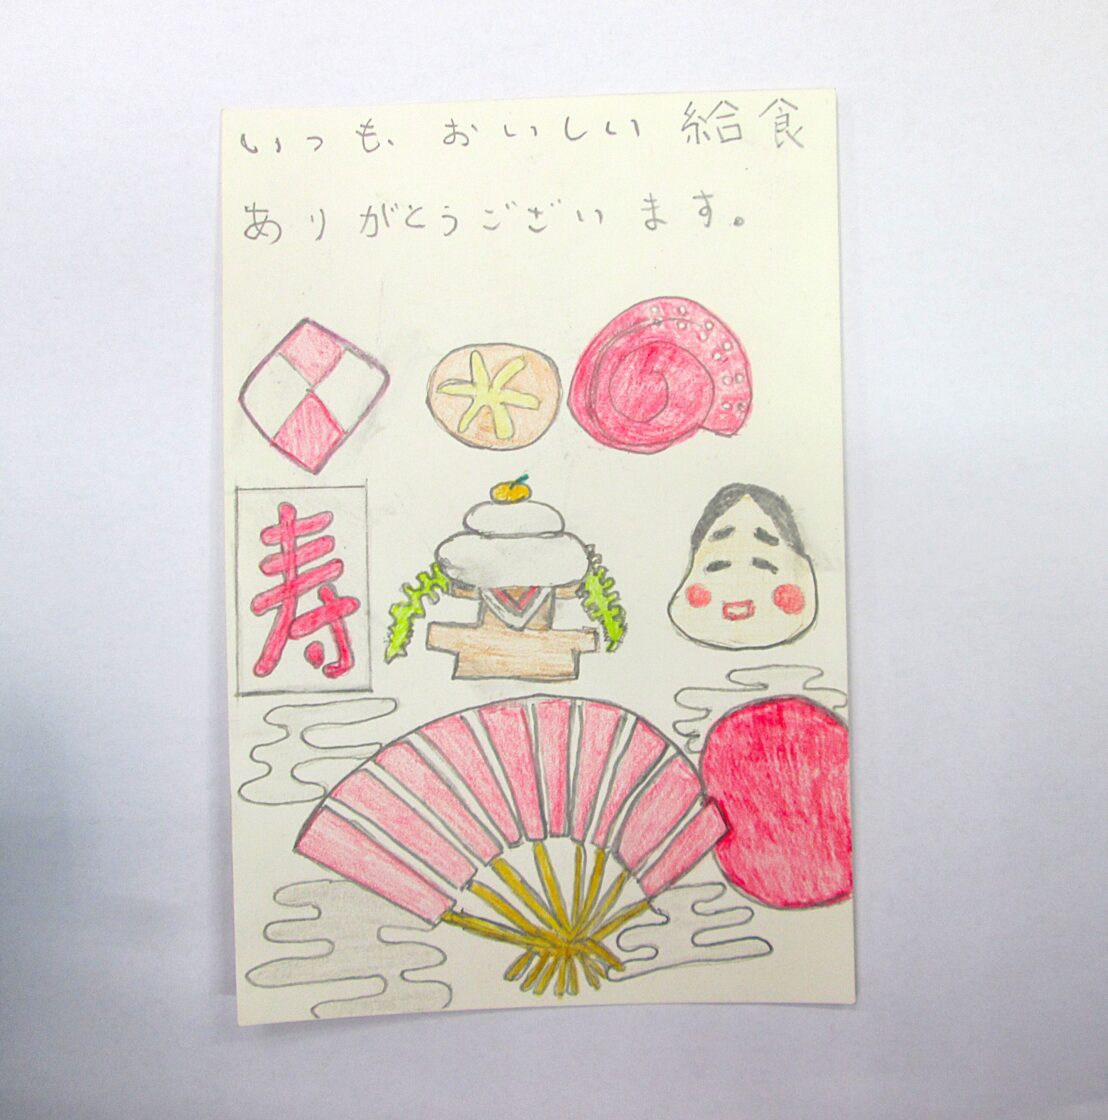 いつも、おいしい給食
ありがとうございます。
寿